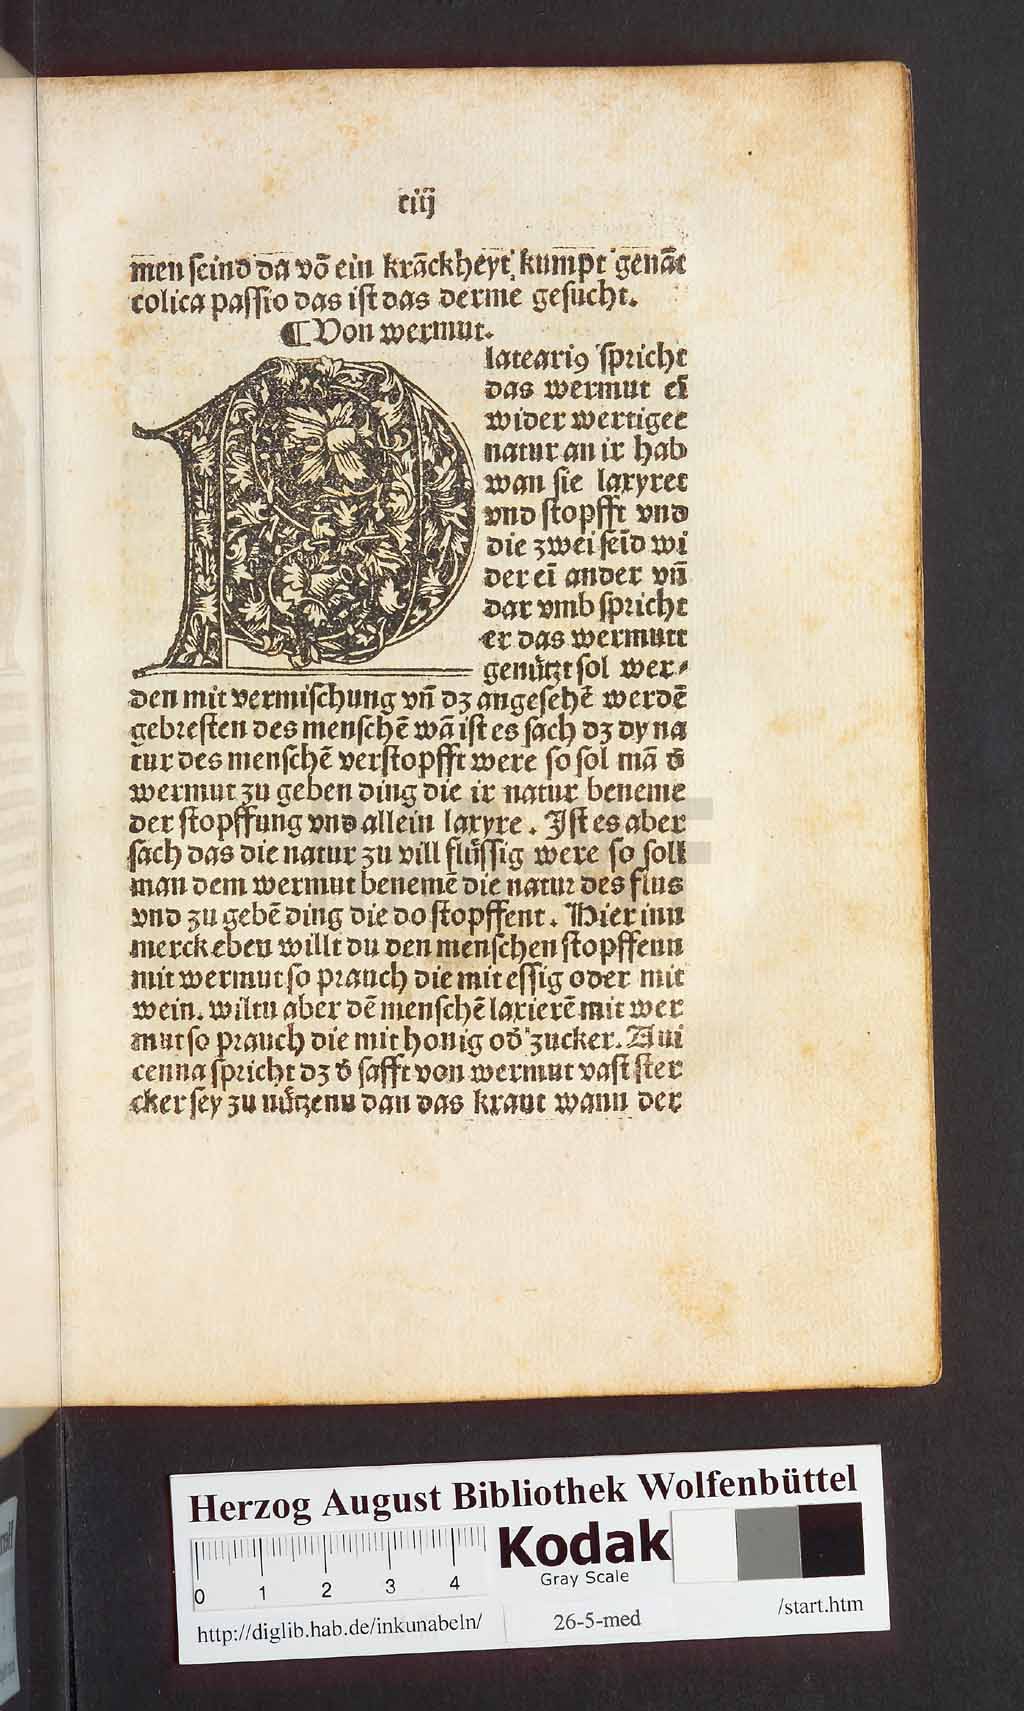 ciij
men ſeind da vō ein krāckheyt kumpt genāt
colica paſſio das iſt das derme geſucht.
¶ Von wermut.
Plateariꝯ ſpricht
das wermut eī
wider wertigee
natur an ir hab
wan ſie laxyret
vnd ſtopfft vnd
die zwei ſeīd wi
der eī ander vn̄
dar vmb ſpricht
er das wermutt
genützt ſol wer⸗
den mit vermiſchung vn̄ dz angeſehē werdē
gebreſten des menſchē wā iſt es ſach dz dy na
tur des menſchē verſtopfft were ſo ſol mā d̄
wermut zu geben ding die ir natur beneme
der ſtopffung vnd allein laxyre. Iſt es aber
ſach das die natur zu vill flüſſig were ſo ſoll
man dem wermut benemē die natur des flus
vnd zu gebē ding die do ſtopffent. Hier inn
merck eben willt du den menſchen ſtopffenn
mit wermut ſo prauch die mit eſſig oder mit
wein. wiltu aber dē menſchē laxierē mit wer
mut ſo prauch die mit honig od̄ zucker. Aui
cenna ſpricht dz d̄ ſafft von wermut vaſt ſter
cker ſey zu nützenn dan das kraut wann der
Herzog August Bibliothek Wolfenbüttel
Kodak
Gray Scale
0 1 2 3 4
http://diglib.hab.de/inkunabeln/ 26-5-med /start.htm